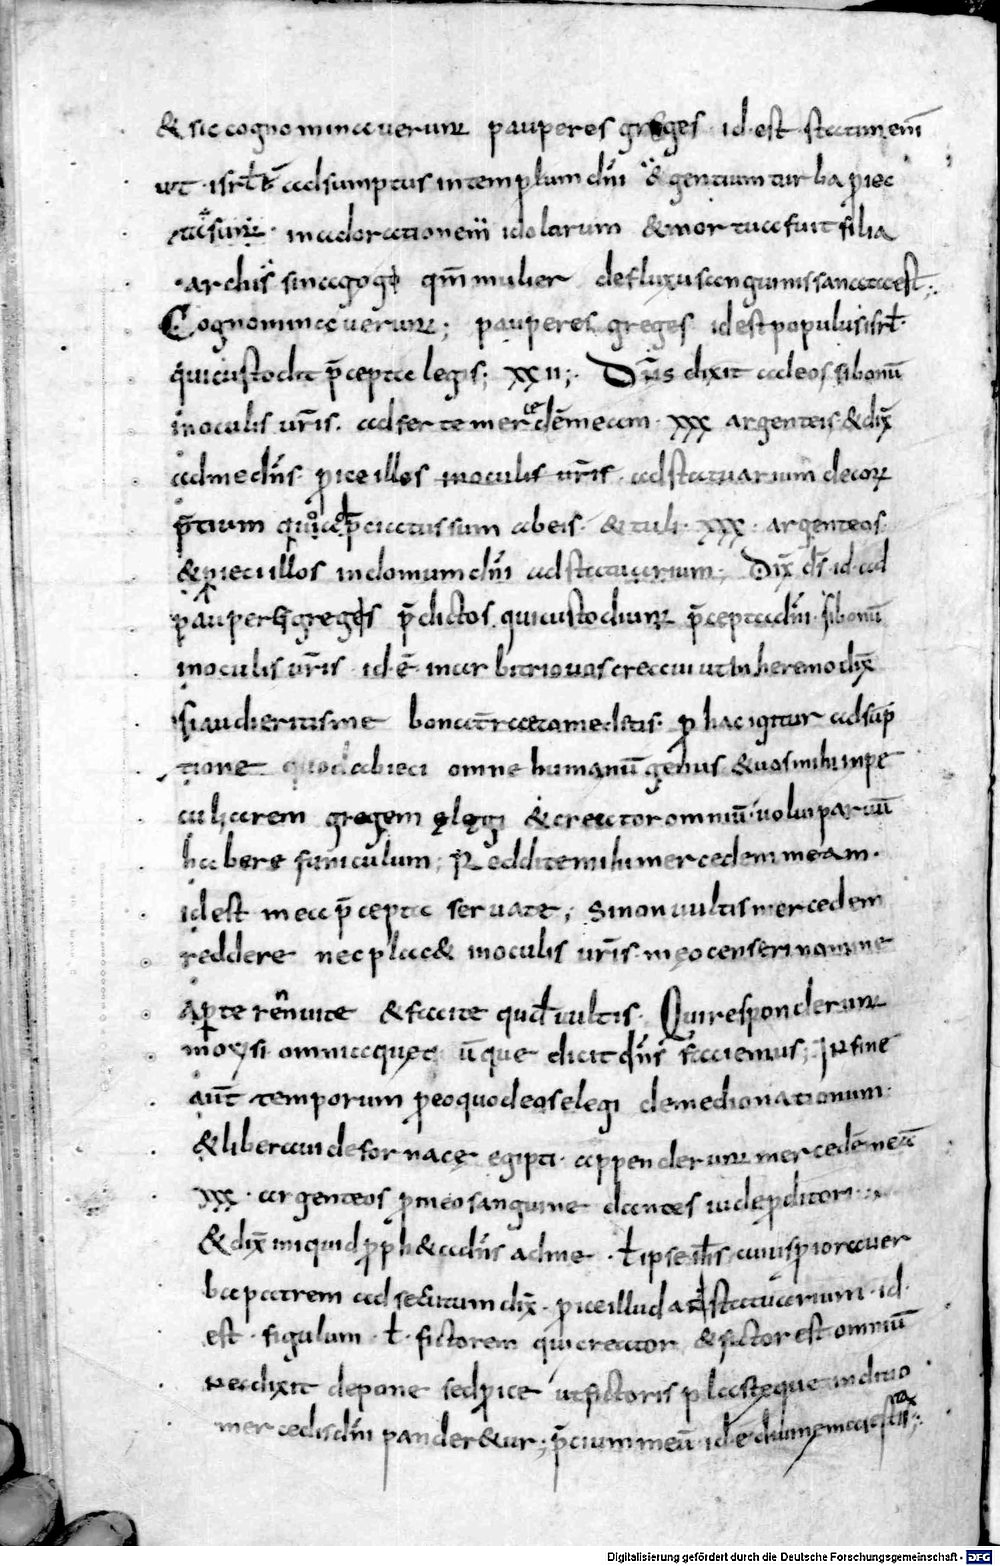 & sic cognominauerunt pauperes greges id est statim enim
ut isrł ē adsumptus in templum dnī & gentium turba proiec
ta sunt in adorationem idolarum & mortua fuit filia
archis sinagogę qm̄ mulier defluxu sanguinis sanata est;
Cognominauerunt; pauperes greges id est populus isrł
qui custodit p̄cepta legis; xxII; Dn̄s dixit ad eos si bonū
in oculis ur̄is adferte mercedēm meam xxx argenteis & dix̄
ad me dn̄s proice illos in oculis ur̄is ad statuarium decorū
p̄tium quo adp̄ciatus sum ab eis & tuli xxx argenteos
& proieci illos in domum dnī ad statuarium; Dix̄ ds̄ id ad
pauperes greges p̄dictos qui custodiunt p̄cepta dnī si bonū
in oculis ur̄is id ē in arbitrio uos creaui ut in heremo dix̄
si audieritis me bona terrae comedetis pro hac igitur adsūp
tione quod abieci omne humanū genus & uos mihi in pe
culiarem gregem elegi & creator omniū uolui paruū
habere funiculum; Reddite mihi mercedem meam
id est mea p̄cepta seruate; Si non uultis mercedem
reddere nec plac& in oculis ur̄is meo censeri nomine
aperte rennuite & facite quod uultis Qui responderunt
moysi omnia quęcūque dicit dn̄s faciemus; In fine
aut̄ temporum pro eo quod eos elegi de medio nationum
& liberaui de fornace egipti appenderunt mercedē meā
xxx argenteos pro meo sanguine dantes iudę proditori
& dix̄ inquid proph&a dn̄s ad me ł ipse ih̄s cuius priora uer
ba patrem ad secutum dix̄ proice illud ad statuarium id
est figulum ł fictorem qui creator & fictor est omniū
Rex dixit depone sed proice ut fictoris plasteque inditio
mercedis dnī pander&ur; p̄cium meū id ē diuinę maiestatis;
Digitalisierung gefördert durch die Deutsche Forschungsgemeinschaft - DFG